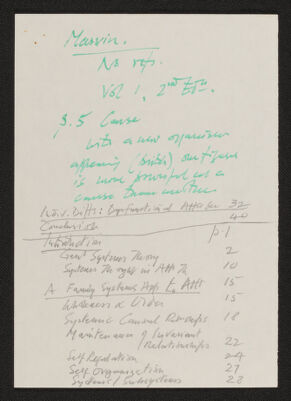 Marvin.
No refs.
Vol 1, 2nd Edn.
p.5 Cause
with a new organism
appearing (birth) our figure
is more powerful as a
cause than
Indiv. Diffs: Dysfunctional Attaches 32
Conclusion 40
Introduction p.1
Genl Systems Theory 2
Systems Thought in Att Th 10
A Family Systems App to Att 15
Wholeness & Order 15
Systemic Causal Relationships 18
Maintenance of Invariant
Relationships 22
Self Regulation 24
Self Organization 27
Systems/Subsystems 28